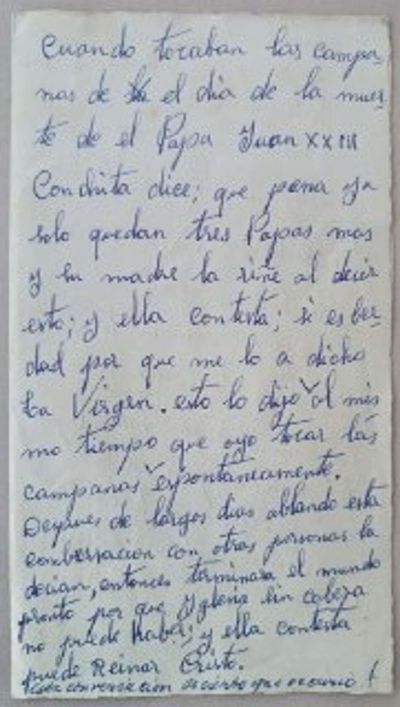 Cuando tocaban las campa
nas de la el dia de la muer-
te de el Papa Juan XXIII
Conchita dice; que pena ya
solo quedan tres Papas mas
y su madre la riñe al decir
esto; y ella contesta; si es ber-
dad por que me lo a dicho
La Virgen. esto lo dijo al mis
mo tiempo que oyo tocar las
campanas espontaneamente.
Despues de largos dias ablando esta
combersacion con otras personas la
decian, entonces terminara el mundo
pronto por que Yglesia sin cabeza
no puede haber; y ella contesta
puede Reinar Cristo.
esta conversacion es cierto que ocurrió